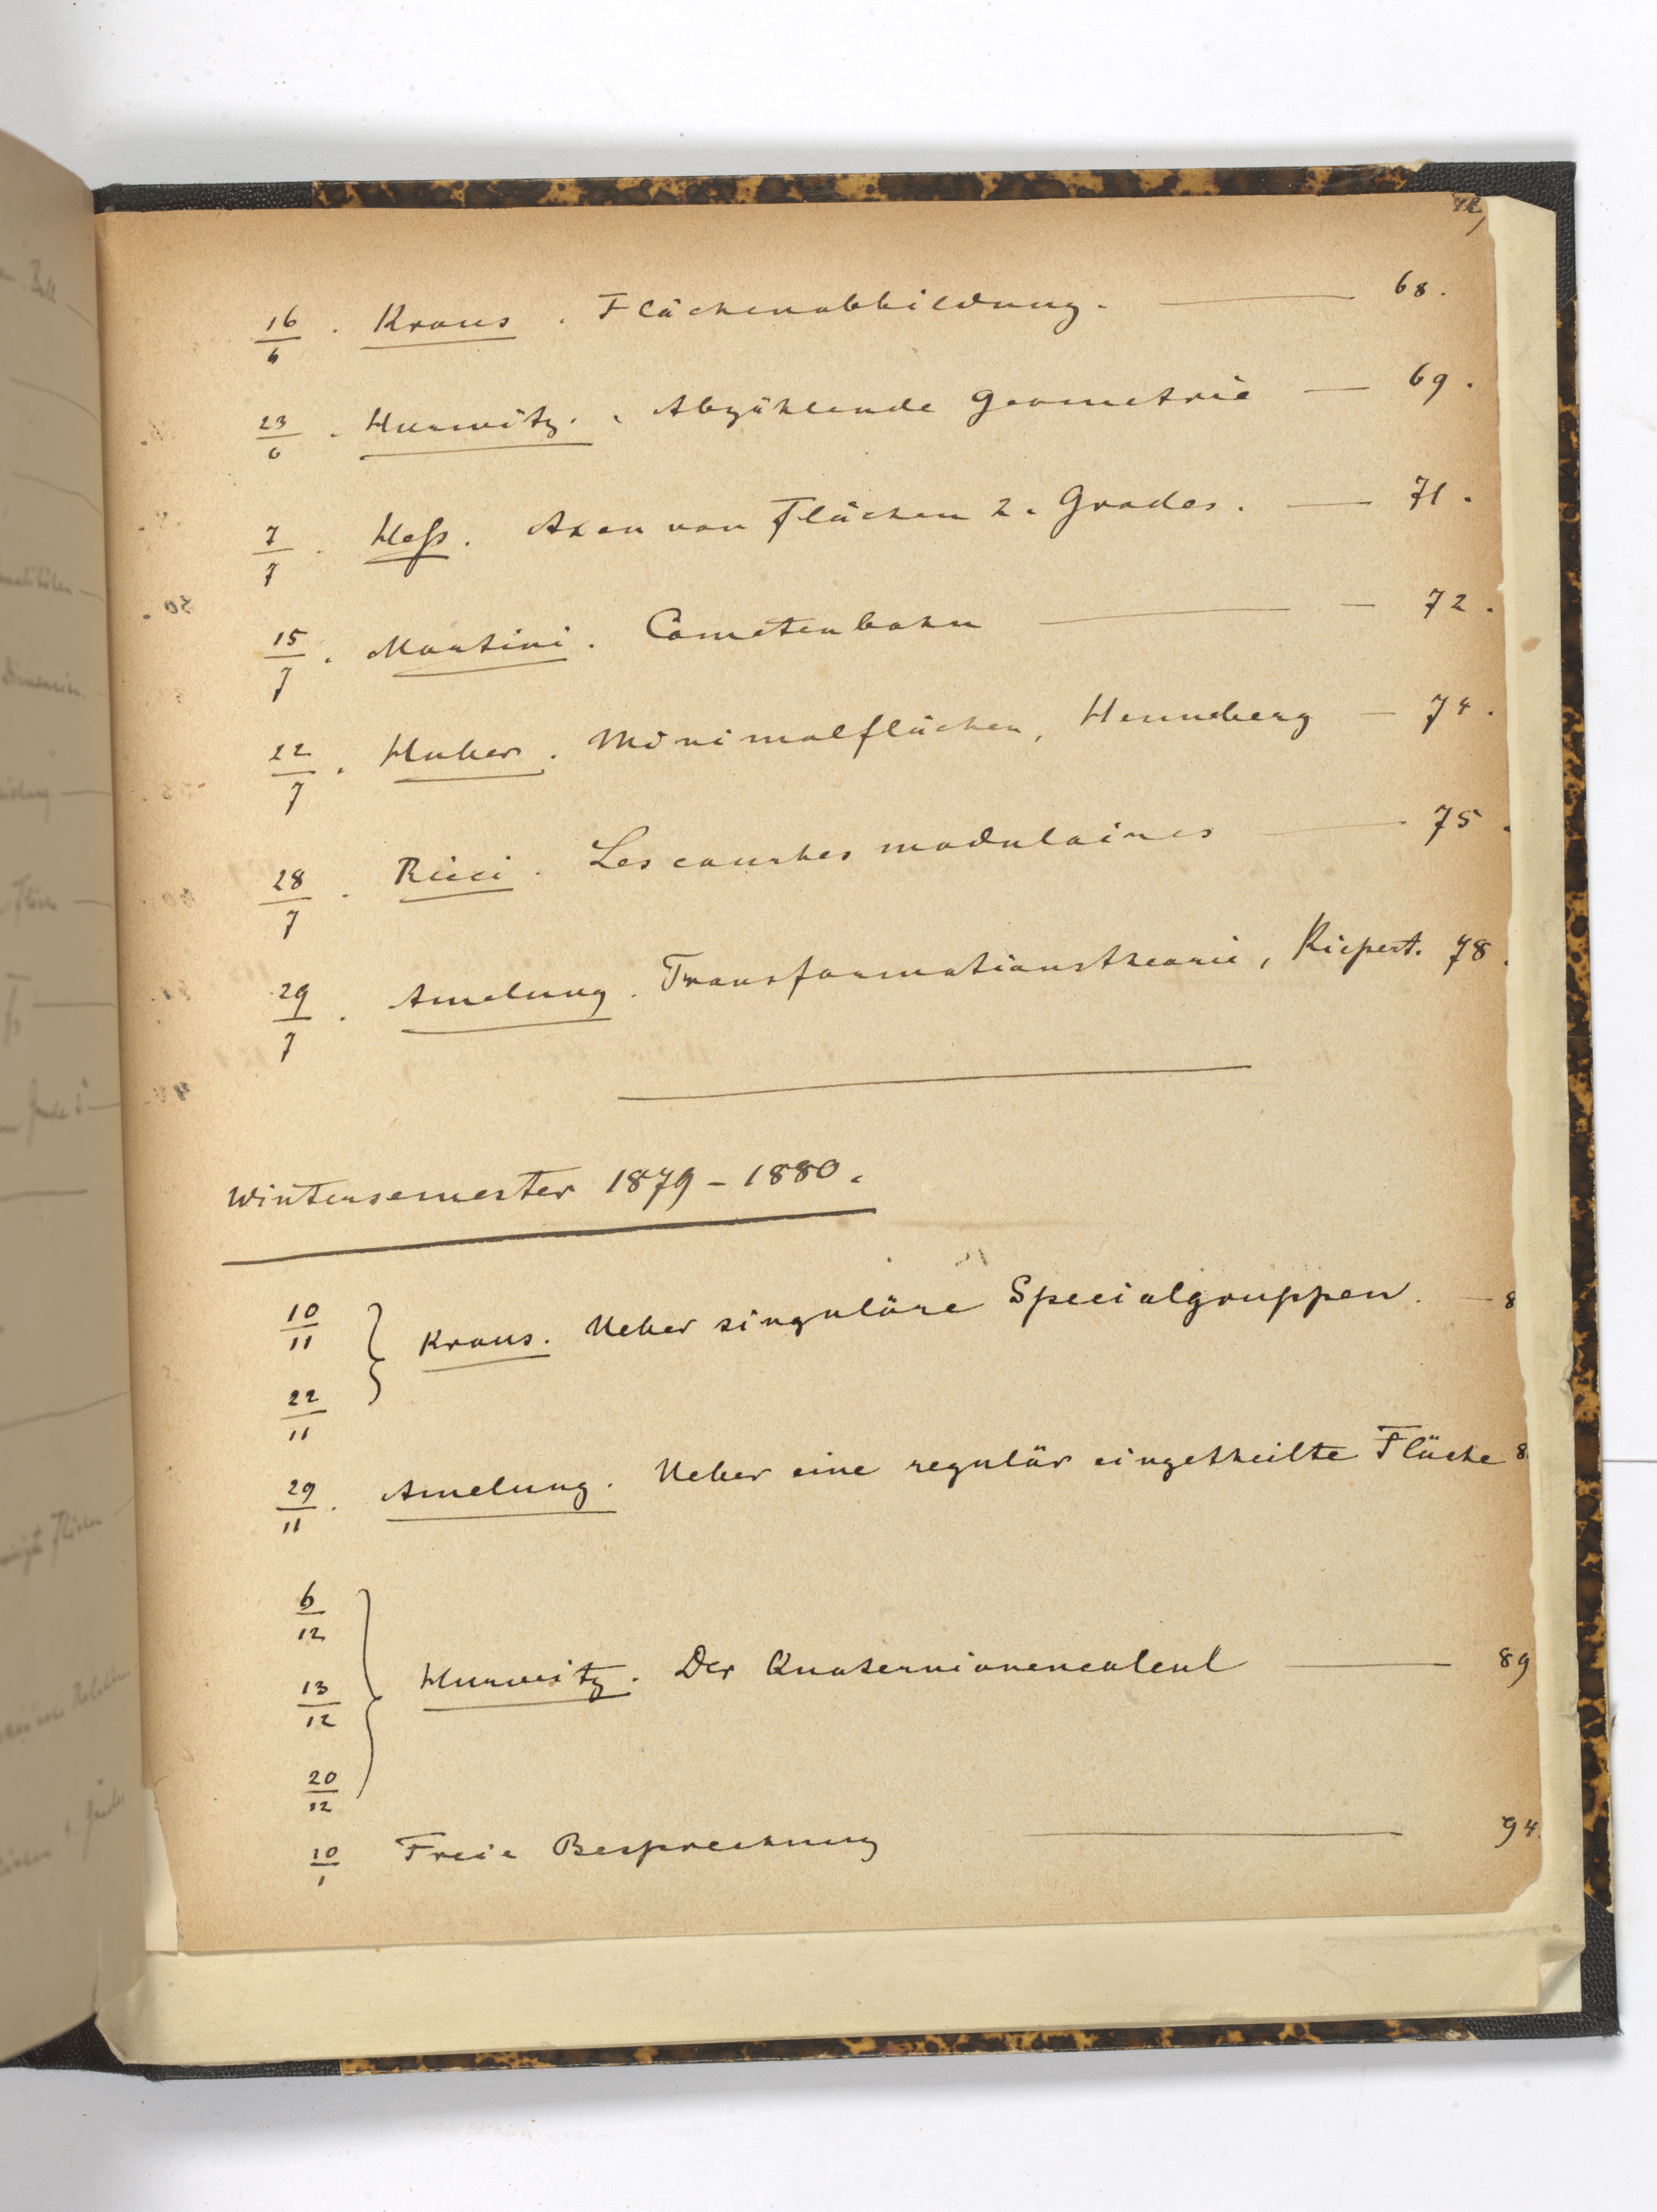 16/6 . Kraus . Flächenabbildung. — 68.
23/6 . Hurwitz. . Abzählende Geometrie — 69.
7/7 . Heſs. Axen von Flächen 2. Grades. — 71.
15/7 . Martini. Cometenbahn — 72.
22/7 . Huber. Minimalflächen, Henneberg — 74.
28/7 . Ricci. Les courbes modulaires — 75.
29/7 . Amelung. Transformationstheorie, Kiepert. 78.
Wintersemester 1879-1880.
10/11
22/11 } Kraus. Ueber singuläre Specialgruppen. — 8
29/11 . Amelung. Ueber eine regulär eingetheilte Fläche 8
6/12
13/12 } Hurwitz. Der Quaternionencalcul — 89
20/12
10/1 Freie Besprechung — 94.